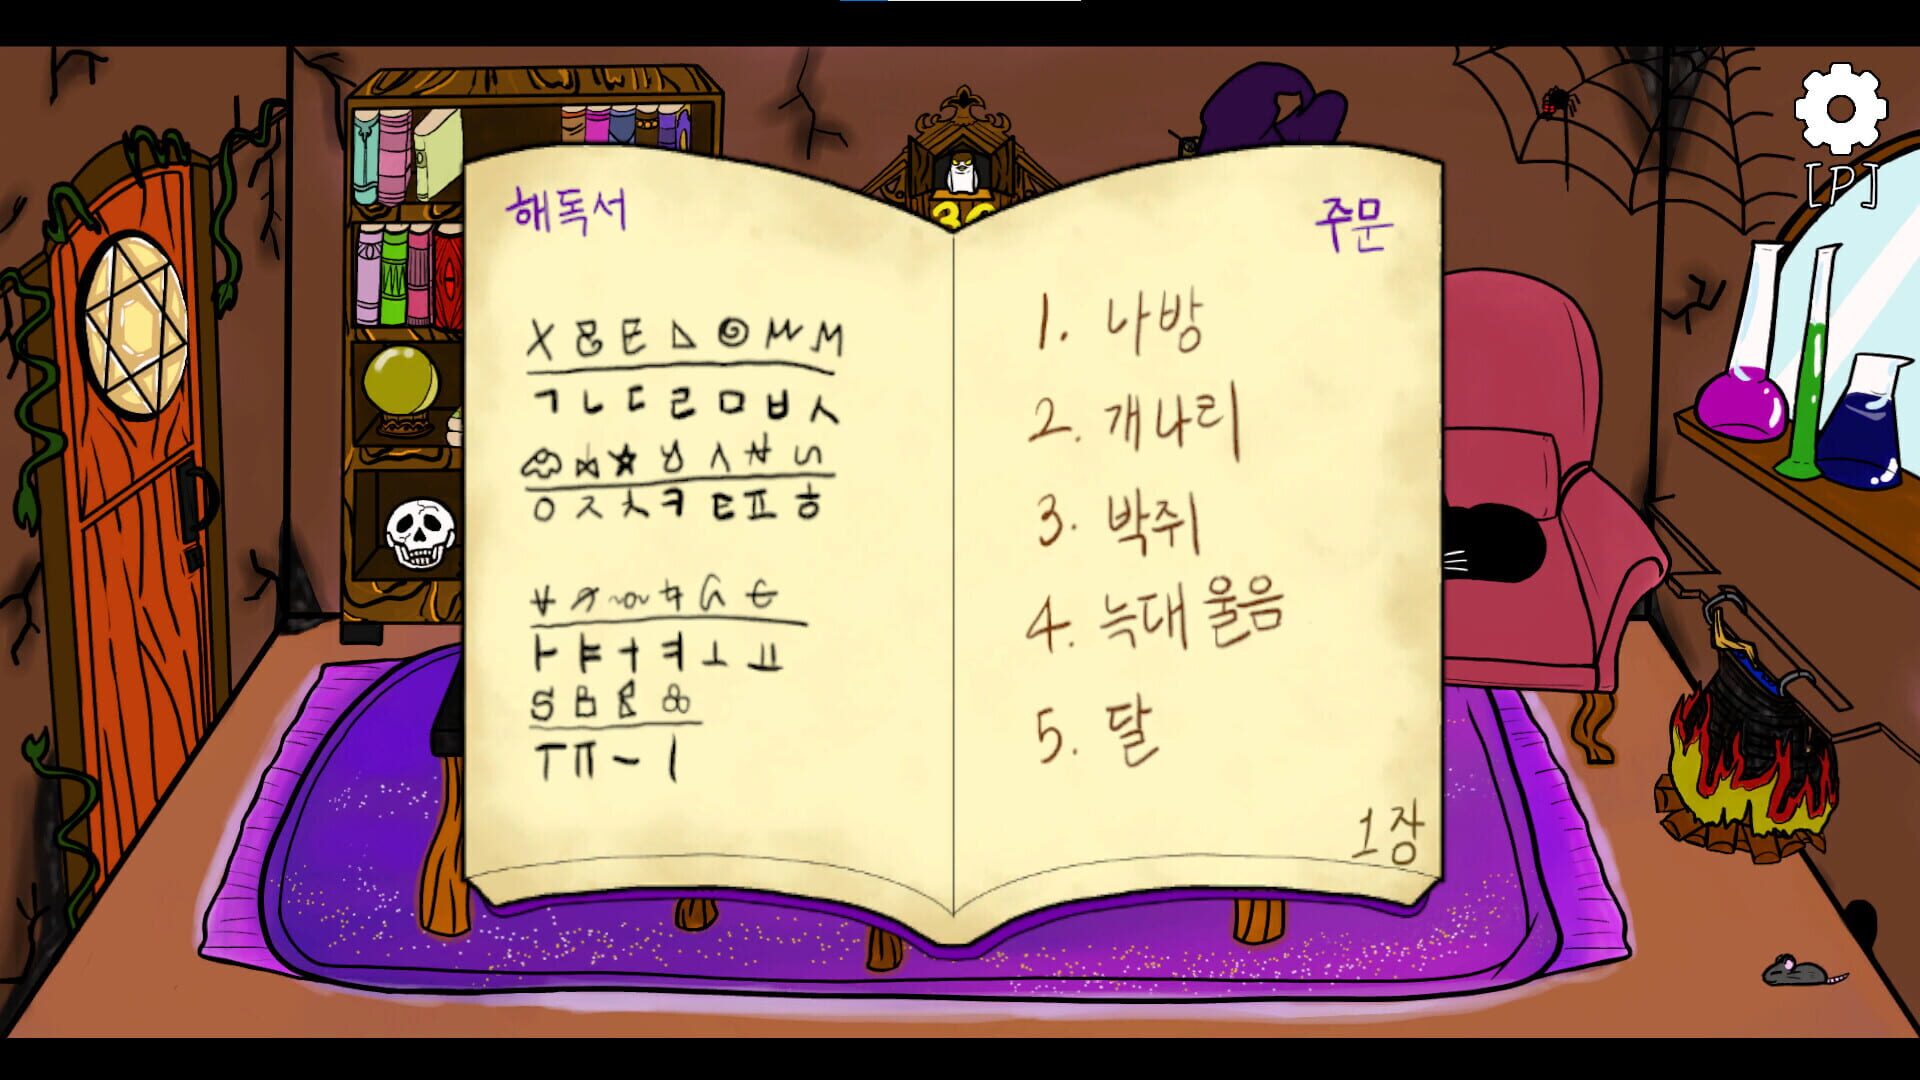 해독서
ㄱ ㄴ ㄷ ㄹ ㅁ ㅂ ㅅ
ㅇ ㅈ ㅊ ㅋ ㅌ ㅍ ㅎ
ㅏ ㅑ ㅓ ㅕ ㅗ ㅛ
ㅜ ㅠ ㅡ ㅣ
주문
1. 나방
2. 개나리
3. 박쥐
4. 늑대 울음
5. 달
1장
[P]